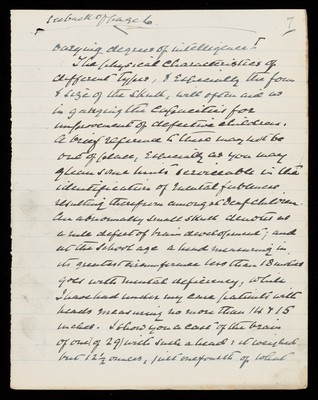 See back of page 6
7
varying degrees of intelligence.
The physical characteristics of
different types, & especially the form
& size of the skull, will often aid us
in gauging the capacities for
improvement of defective children.
A brief reference to these may not be
out of place, especially as you may
glean some hints serviceable in the
identification of mental feebleness
resulting therefrom amongst deaf children.
An abnormally small skull denotes as
a rule defect of brain development, and
at the school age a head measuring in
its greatest circumference less than 18 inches
goes with mental deficiency, while
I have had under my care patients with
heads measuring no more than 14 & 15
inches. I show you a cast of the brain
of one (of 29) with such a head: it weighed
but 12½ ounces, just one fourth of what